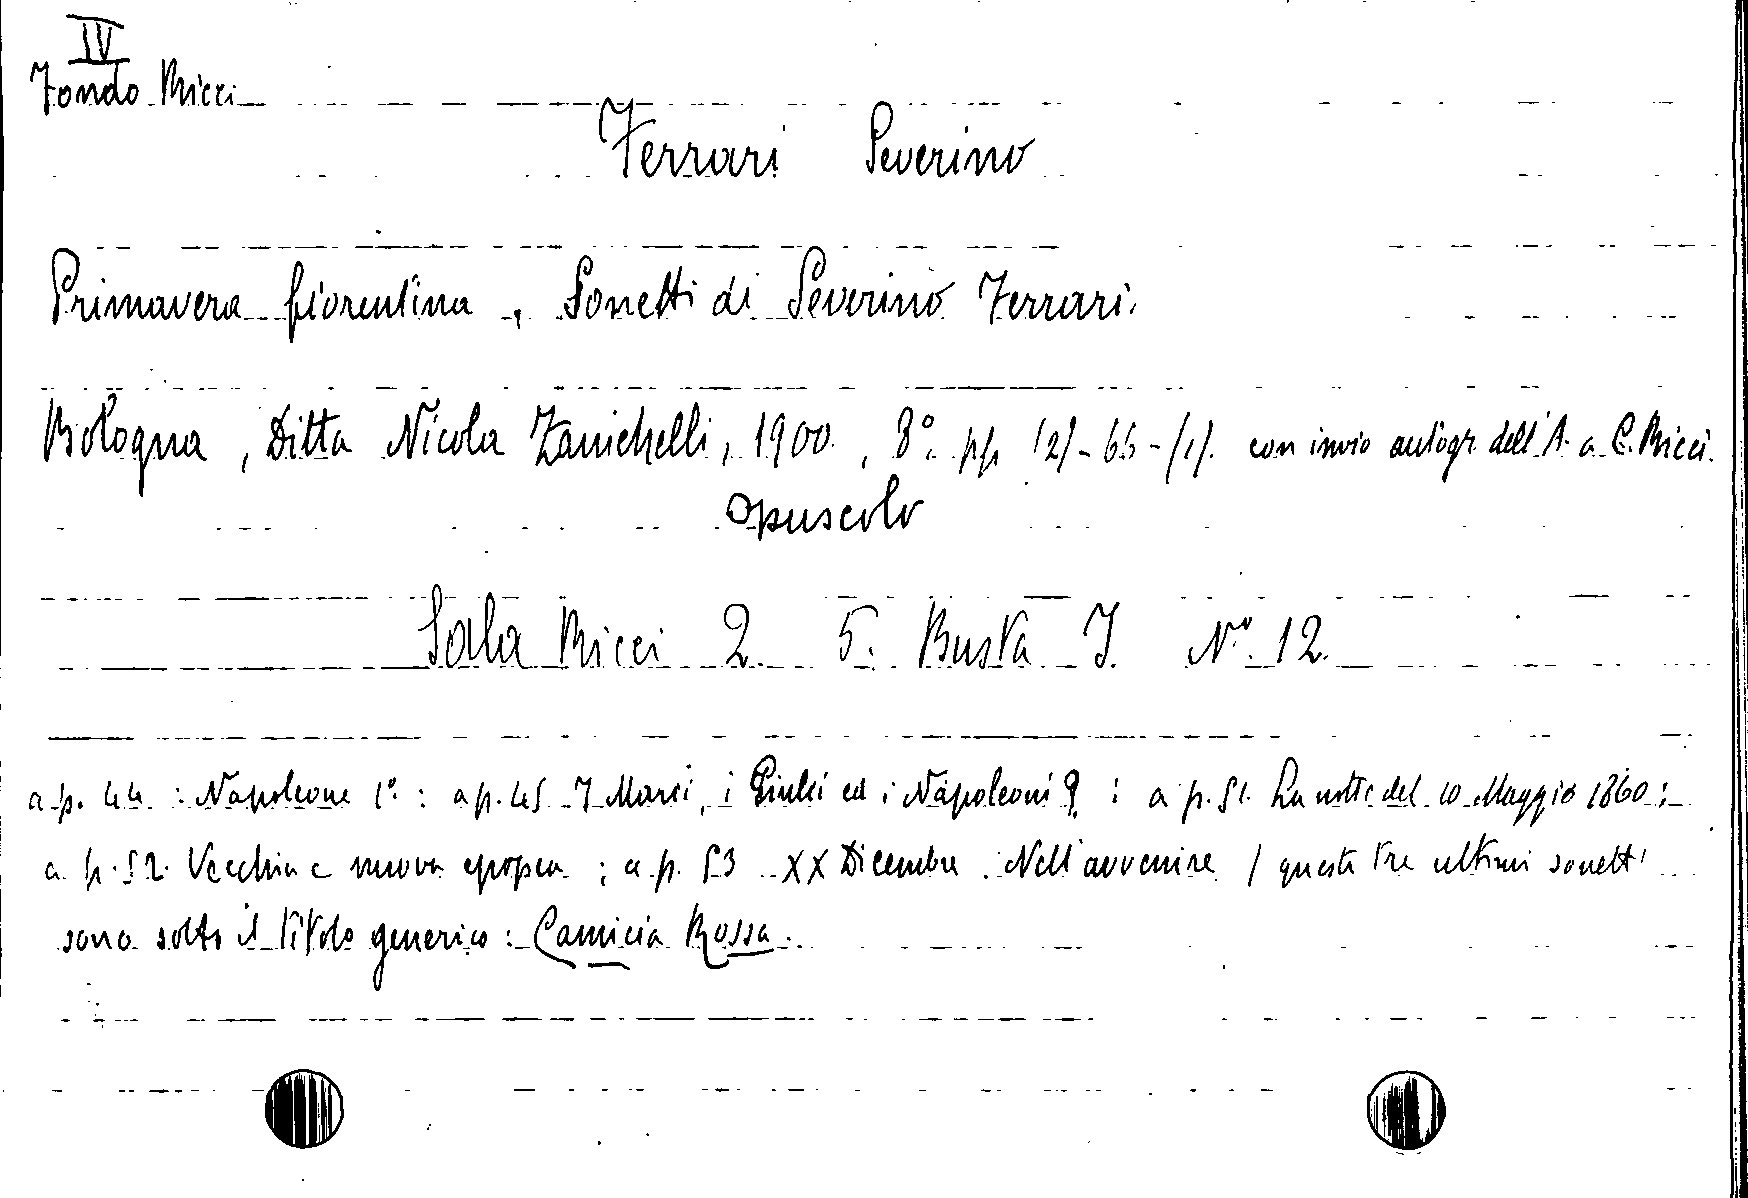 IV
Fondo Ricci
Ferrari Severino
Primavera fiorentina, Sonetti di Severino Ferrari.
Bologna, Ditta Nicola Zanichelli, 1900, 8°. pp. /2/-66-/1/. con invio autogr. dell'A. a C. Ricci.
opuscolo
Sala Ricci 2 5. Busta I. N° 12.
a p. 44 : Napoleone 1° : a p. 45 I Marci, i Giulii ed i Napoleoni ? : a p. 51. La notte del 10 Maggio 1860 ;
a p. 52. Vecchia e nuova epopea ; a p. 53 XX Dicembre. Nell'avvenire / questi tre ultimi sonetti
sono sotto il titolo generico : Camicia Rossa.